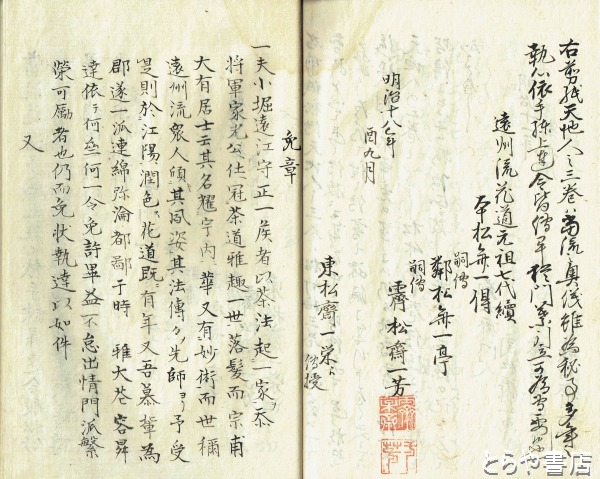 右剪紙天地人之三巻ハ当流奥儀雖為秘事多年
執心依手練上達令皆伝畢於門葉
遠州流花道元祖七代続
本松斎一得
嗣傳
鄰松斎一亭
嗣傳
霽松斎一芳
明治十八年
酉九月
東松齋一栄ゟ
傳授
免章
一夫小堀遠江守正一矦者以茶法起一家忝
将軍家光公仕冠茶道雅趣一世落髪而宗甫
大有居士云其名耀宇内華又有妙術而世稱
遠州流衆人傾其風姿其法傳々先師ヨリ予受
是則於江陽潤色花道既ニ有年又吾慕輩為
郡遂一派連綿弥淪都鄙于時 雅大芲容昇
達依ニ何某何一令免許畢益不怠出情門派繁
榮可励者也仍而免状執達以如件
又
とらや書店